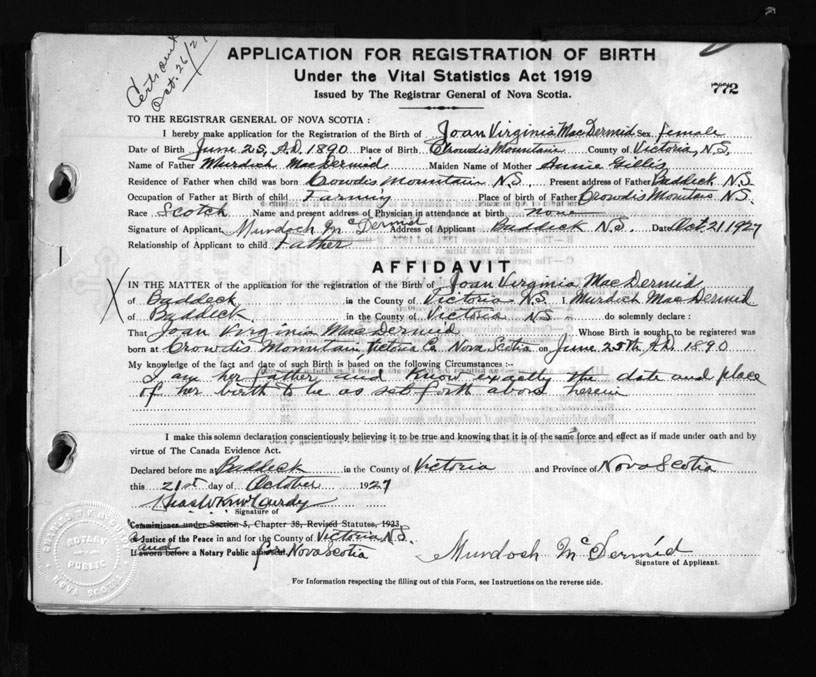 Certs and
Oct. 26/27
APPLICATION FOR REGISTRATION OF BIRTH
Under the Vital Statistics Act 1919
Issued by The Registrar General of Nova Scotia.
772
TO THE REGISTRAR GENERAL OF NOVA SCOTIA :
I hereby make application for the Registration of the Birth of Joan Virginia MacDermid Sex female
Date of Birth June 25, A.D. 1890 Place of Birth Crowdis Mountain County of Victoria, N.S.
Name of Father Murdich MacDermid Maiden Name of Mother Annie Gillis
Residence of Father when child was born Crowdis Mountain N.S. Present address of Father Baddeck N.S
Occupation of Father at Birth of child Farming Place of birth of Father Crowdis Mountain N.S.
Race Scotch Name and present address of Physician in attendance at birth none
Signature of Applicant Murdoch McDermid Address of Applicant Baddeck N.S. Date Oct. 21 1927
Relationship of Applicant to child Father
AFFIDAVIT
IN THE MATTER of the application for the registration of the Birth of Joan Virginia MacDermid
of Baddeck in the County of Victoria N.S. I, Murdich MacDermid
of Baddeck in the County of Victoria N.S. do solemnly declare :
That Joan Virginia MacDermid Whose Birth is sought to be registered was
born at Crowdis Mountain, Victoria Co Nova Scotia on June 25th A.D. 1890
My knowledge of the fact and date of such Birth is based on the following Circumstances :-
I am her father and know exactly the date and place
of her birth to be as set forth above herein
I make this solemn declaration conscientiously believing it to be true and knowing that it is of the same force and effect as if made under oath and by
virtue of The Canada Evidence Act.
Declared before me at Baddeck in the County of Victoria and Province of Nova Scotia
this 21st day of October 1927
Signature of
Commissioner under Section 5, Chapter 38, Revised Statutes, 1923
a Justice of the Peace in and for the County of Victoria N.S.
and
If sworn before a Notary Public for Nova Scotia
Murdoch McDermid
Signature of Applicant.
NOTARY PUBLIC
NOVA SCOTIA
For Information respecting the filling out of this Form, see Instructions on the reverse side.